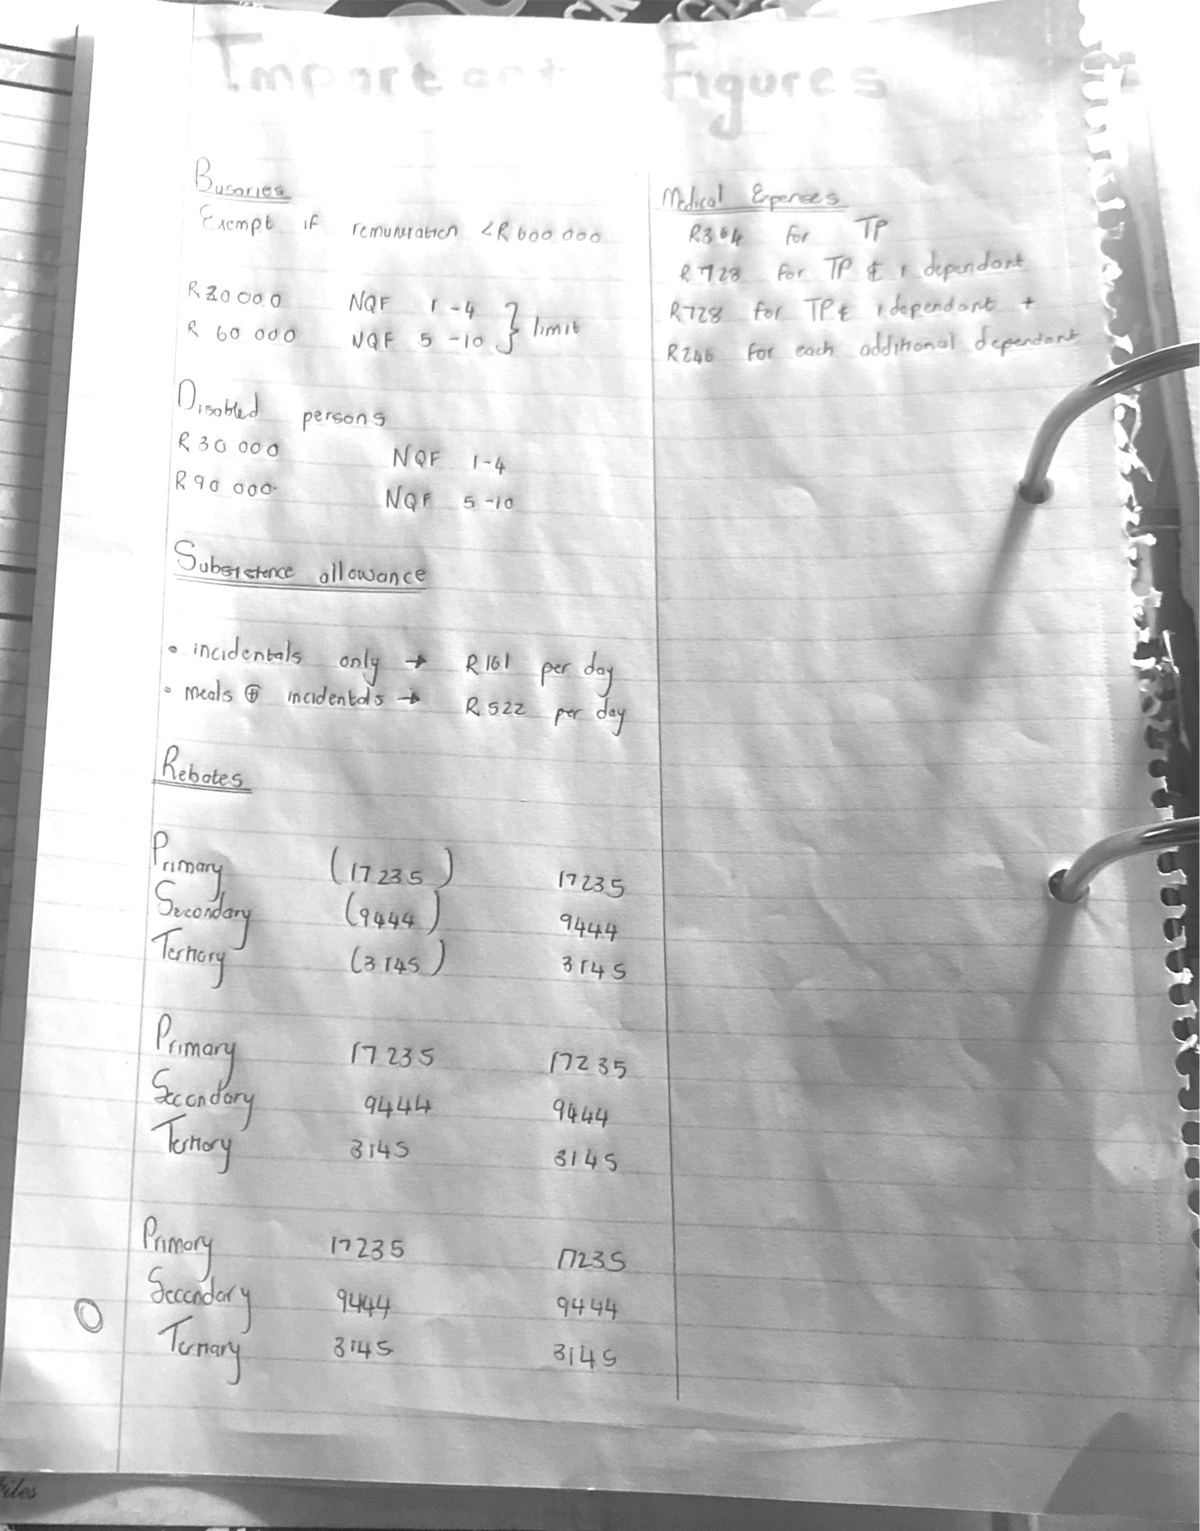 Important Figures
Busaries
Exempt if remuneration <R600 000
R20000 NQF 1-4
R 60 000 NQF 5-10 } limit
Disabled persons
R 30 000 NQF 1-4
R 90 000 NQF 5-10
Subsistence allowance
• incidentals only → R161 per day
• meals ⊕ incidentals → R522 per day
Rebates
Primary (17 235) 17235
Secondary (9444) 9444
Ternary (3145) 3145
Primary 17 235 17235
Secondary 9444 9444
Ternary 3145 3145
Primary 17235 17235
Secondary 9444 9444
Ternary 3145 3145
Medical Expenses
R364 for TP
R728 for TP & 1 dependant
R728 for TP & 1 dependant +
R246 for each additional dependant